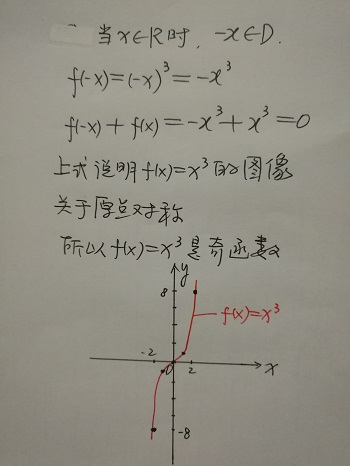 当x∈R时，-x∈D.
f(-x)=(-x)³=-x³
f(-x)+f(x)=-x³+x³=0
上式说明f(x)=x³的图像
关于原点对称
所以f(x)=x³是奇函数
y
8
f(x)=x³
-2
O
2
x
-8